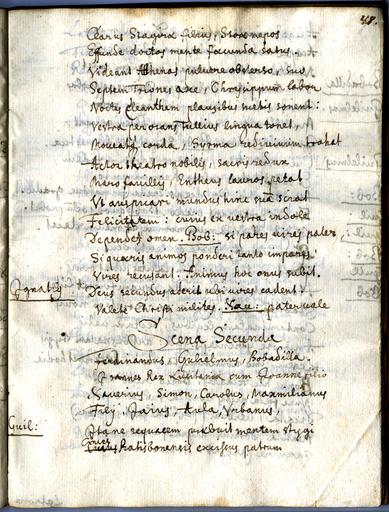 48.
Clarus Stagira filius,
Effunde doctos mente facunda satus
Videant Athenas pulvere obverso, suo
Septem Triones axe, Chrysippum labor
Noctis Cleanthem plausibus sonent:
Vestra perorans Tullius lingua tonet,
Moveatq corda, Syrma redivivum trahat
Actor theatro nobilis, sacris redux
Mars, Entheus lauros petat
Ut auspicari mundus hinc sua sciat
Felicitatem: cuius ex vestra indole
Dependet omen. Bob: si pares vires pater
Si quaeris animos ponderi tanto impares
Vires recusant. Animus hoc onus subit.
Ignatig Deus secundus aderit ubi vires cadent:
Valete Christi milites. Xau: pater vale
Scena Secunda
Ferdinandus, Gulielmus, Bobadilla.
Joannes Rex Lusitaniae cum Joanne filio
Xaverius, Simon, Carolus, Maximilianus
Filij. Paius, Aula, Urbanus,
Guil: Plane sequacem mentem stygi
Ratisbonensis excessus patrum